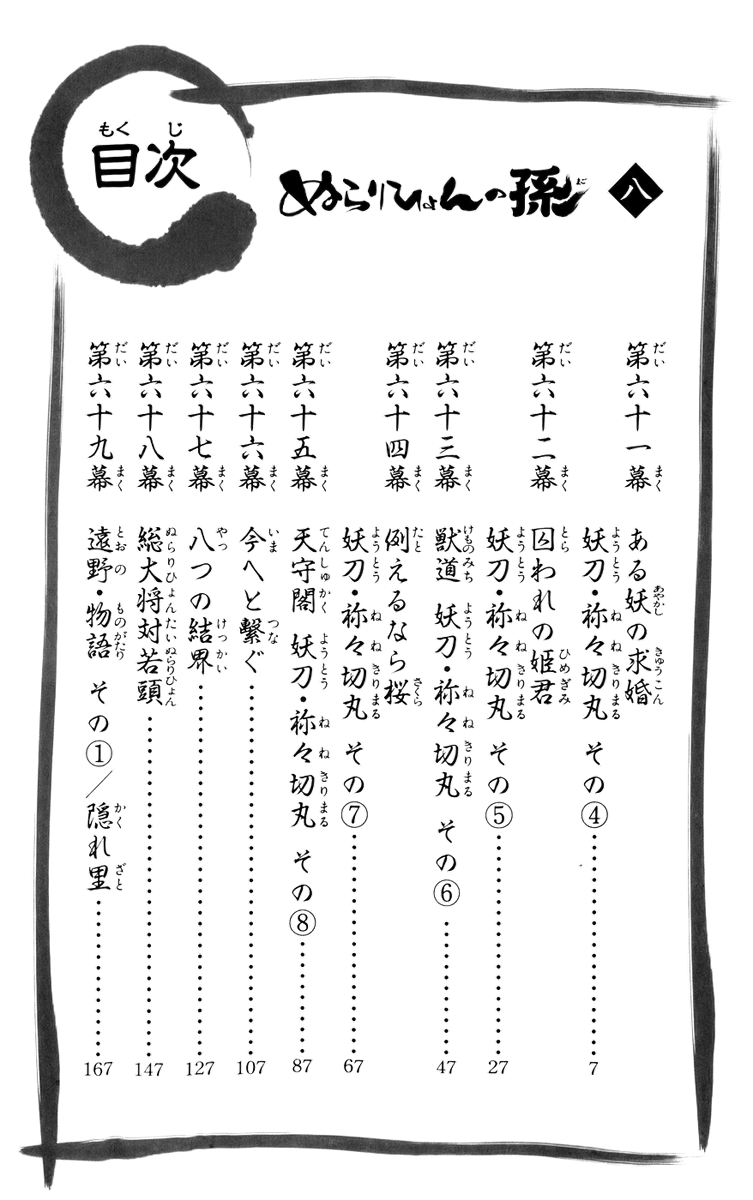 目次
ぬらりひょんの孫 八
第六十一幕 ある妖の求婚
妖刀・祢々切丸 その④ 7
第六十二幕 囚われの姫君
妖刀・祢々切丸 その⑤ 27
第六十三幕 獣道 妖刀・祢々切丸 その⑥ 47
第六十四幕 例えるなら桜
妖刀・祢々切丸 その⑦ 67
第六十五幕 天守閣 妖刀・祢々切丸 その⑧ 87
第六十六幕 今へと繋ぐ 107
第六十七幕 八つの結界 127
第六十八幕 総大将対若頭 147
第六十九幕 遠野・物語 その①/隠れ里 167